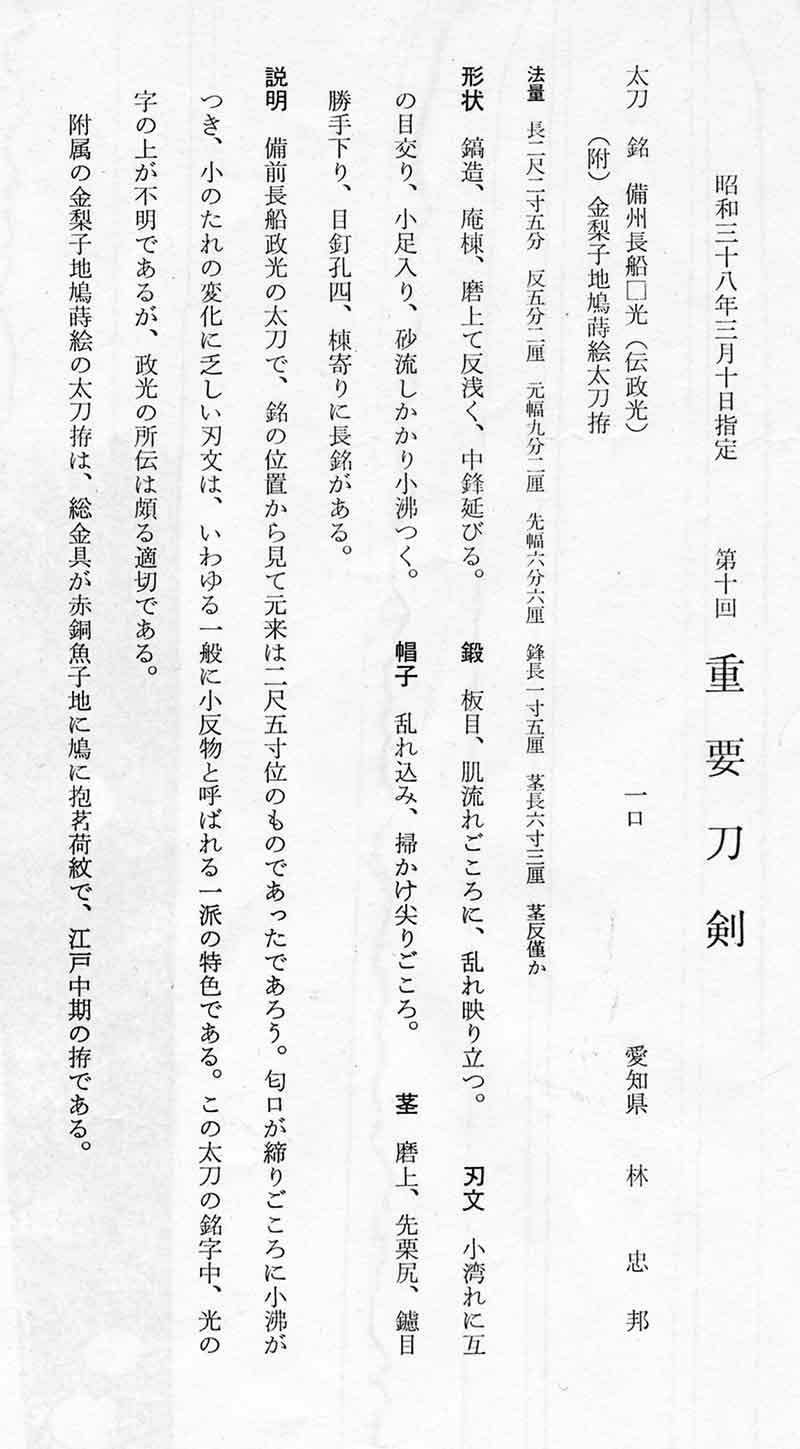 昭和三十八年三月十日指定　第十回　重要刀剣
太刀　銘　備州長船□光（伝政光）　一口　愛知県　林　忠　邦
（附）金梨子地鳩蒔絵太刀拵
法量　長二尺二寸五分　反五分二厘　元幅九分二厘　先幅六分六厘　鋒長一寸五厘　茎長六寸三厘　茎反僅か
形状　鎬造、庵棟、磨上て反浅く、中鋒延びる。　鍛　板目、肌流れごころに、乱れ映り立つ。　刃文　小湾れに互
の目交り、小足入り、砂流しかかり小沸つく。　帽子　乱れ込み、掃かけ尖りごころ。　茎　磨上、先栗尻、鑢目
勝手下り、目釘孔四、棟寄りに長銘がある。
説明　備前長船政光の太刀で、銘の位置から見て元来は二尺五寸位のものであったであろう。匂口が締りごころに小沸が
つき、小のたれの変化に乏しい刃文は、いわゆる一般に小反物と呼ばれる一派の特色である。この太刀の銘字中、光の
字の上が不明であるが、政光の所伝は頗る適切である。
附属の金梨子地鳩蒔絵の太刀拵は、総金具が赤銅魚子地に鳩に抱茗荷紋で、江戸中期の拵である。